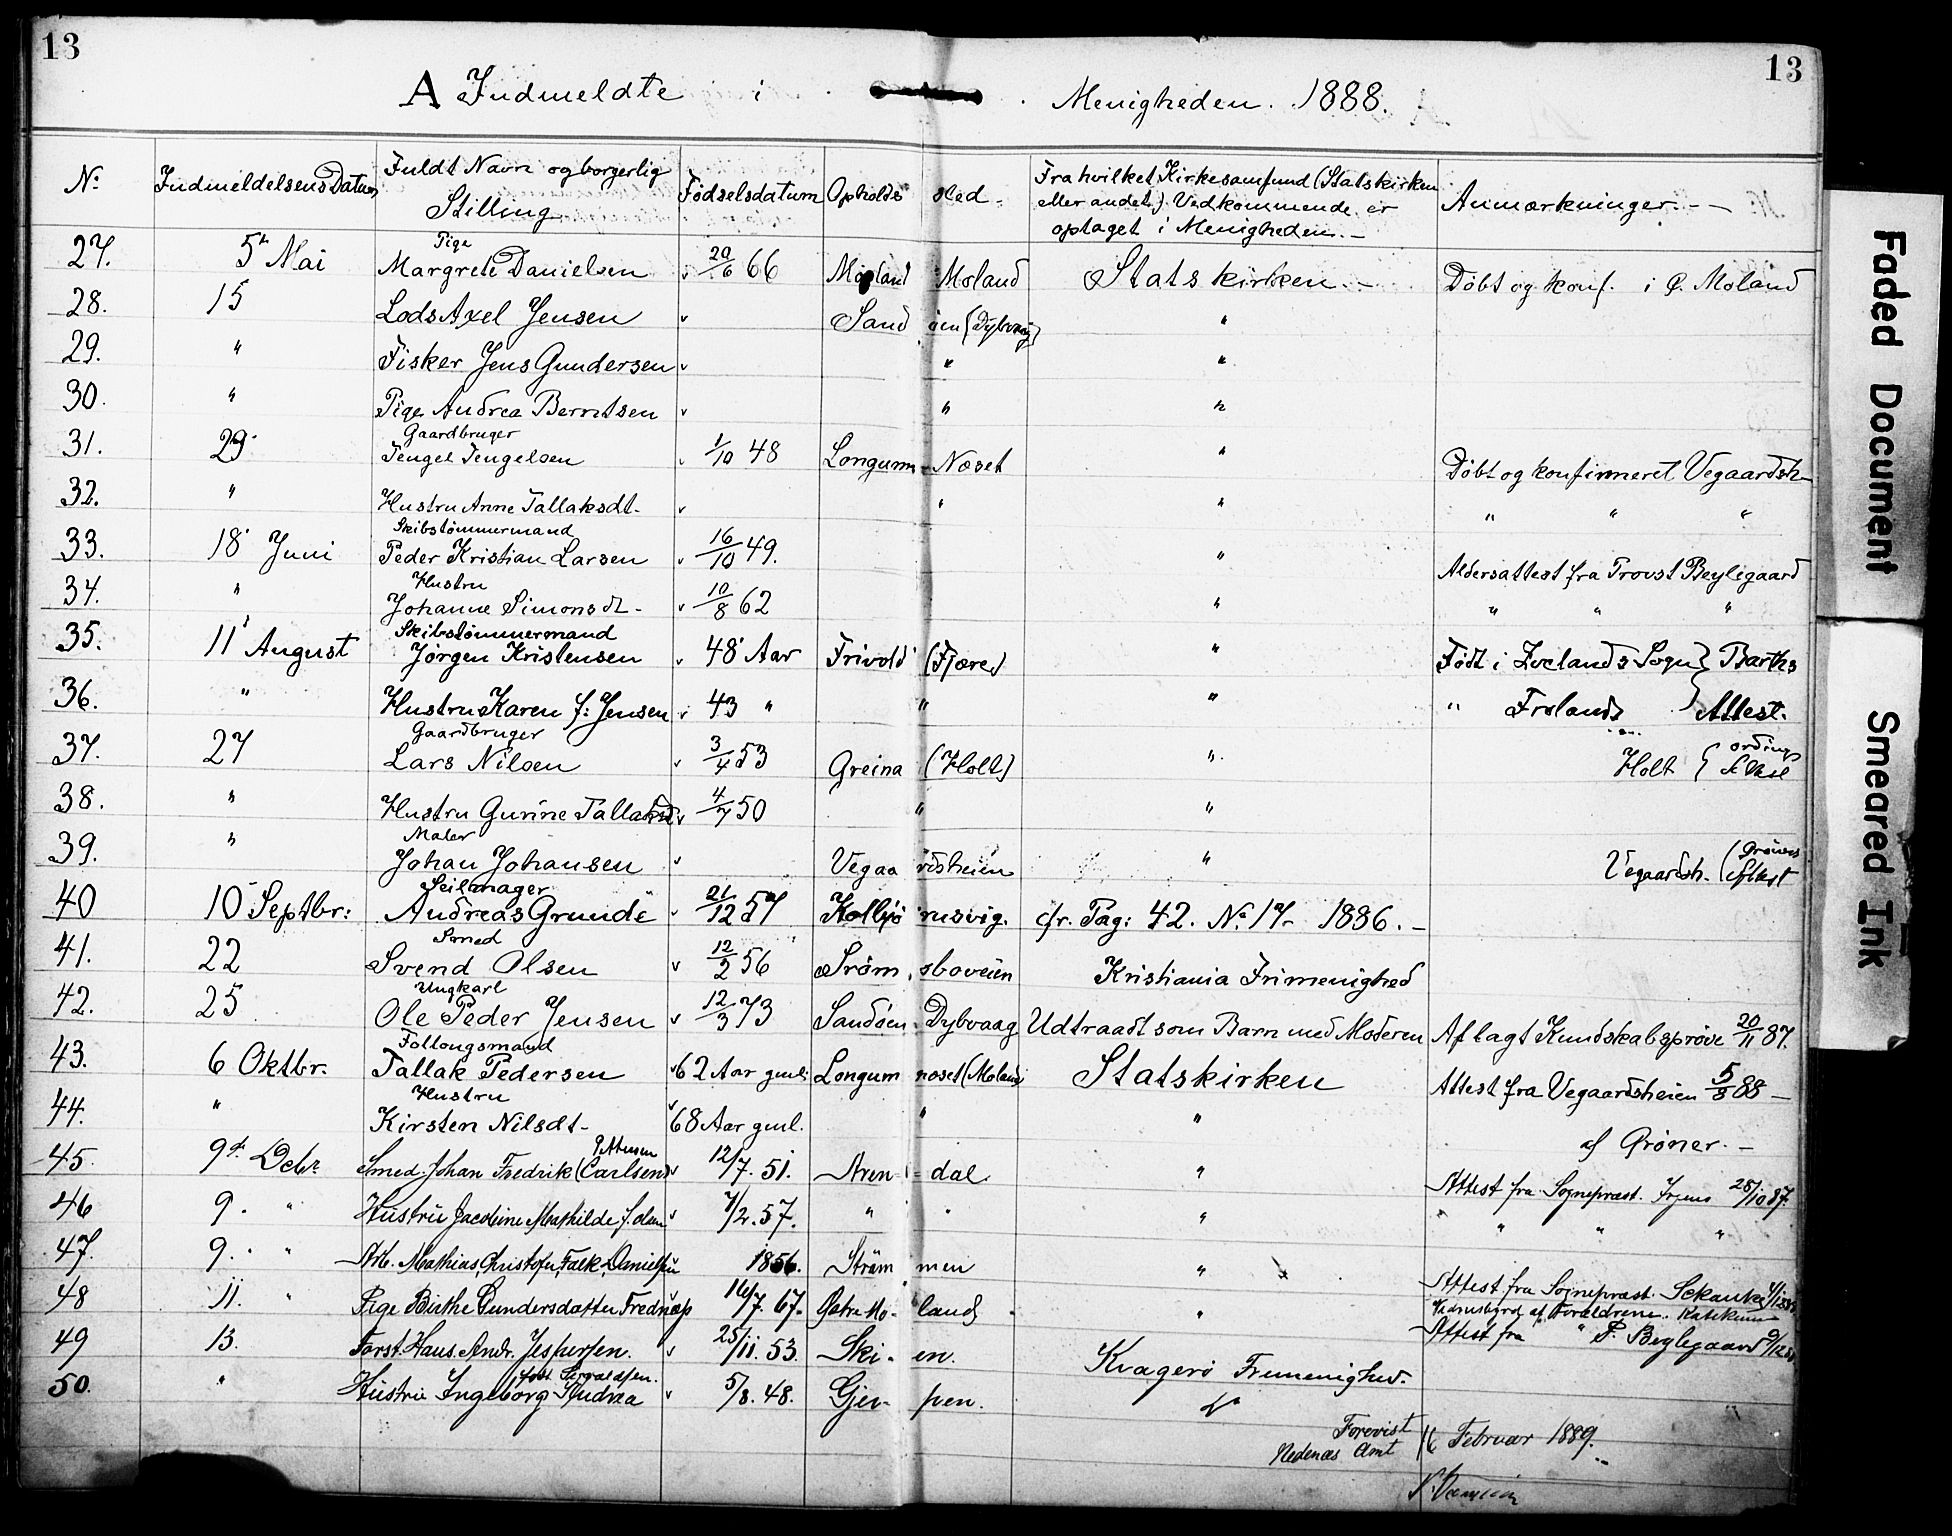 13
13
A Indmeldte i Menigheden. 1888.
No Indmeldelsens Datum Fuldt Navn og borgerlig Stilling Fødselsdatum Opholds sted. Fra hvilket Kirkesamfund (Statskirken eller andet) Vedkommende er optaget i Menigheden.- Anmærkninger.-
27. 5te Mai Pige Margrete Danielsen 20/6 66 Moland Moland Statskirken.- Døbt og konf. i Ø. Moland
28. 15 Lods Axel Jensen Sand öen (Dybvaag) "
29. " Fisker Jens Gundersen " "
30. " Pige Andrea Berntsen " "
31. 29 Gaardbruger Tengel Tengelsen 1/10 48 Longum- Næset " Døbt og konfirmeret Vegaardsh-
32. " Hustru Anne Tallaksdt. " " " " "
33. 18 Juni Skibstömmermand Peder Kristian Larsen 16/10 49. " Aldersattest fra Provst Beylegaard
34. " Hustru Johanne Simonsdt- 10/8 62 " " " "
35. 11 August Skibstömmermand Jørgen Kristensen 48 Aar Frivold (Fjære) " Født i Evelands Sogn } Barths
36. " Hustru Karen f: Jensen 43 " " " " Frolands } Attest.
37. 27 Gaardbruger Lars Nilsen 3/4 53 Greina (Holt) " Holt {
38. " Hustru Gurine Tallaksd. 4/7 50 " "
39. " Maler Johan Johansen Vegaa rdsheien " Vegaardsh. (Grøners
40 10 Septbr: Seilmager Andreas Grunde 21/12 57 Kolbjö rnsvig. cfr. Pag: 42. No. 17. 1886.-
41. 22 Smed Svend Olsen 12/2 56 Ström sboveien Kristiania Frimenighed
42. 25 Ungkarl Ole Peder Jensen 12/3 73 Sandöen Dybvaag Udtraadt som Barn med Moderen Aflagt Kundskabsprøve 20/11 87.
43. 6 Oktbr. Follougsmand Tallak Pedersen 62 Aar gml. Longum næset (Moland) Statskirken Attest fra Vegaardsheien 5/8 88 -
44. " Hustru Kirsten Nilsdt- 68 Aar gml. " " af Grøner.-
45. 9de Decbr Smed Johan Fredrik (Carlsen) 12/7. 51. Aren- dal. " Attest fra Sognepræst. 28/10 87.
46 9. " Hustru Jacobine Mathilde f. Olsen 7/2. 57. " " " " " " "
47. 9. " " Arb. Mathias, Christofer, Falk, Danielsen 1856. Ström men " Attest fra Sognepræst.
48 11. " Pige Birthe Gundersdatter 16/7. 67. Østre Mo- land " af Forældrene.
49 13. Forst. Hans Andr. Jespersen. 25/11. 53. Ski- en. Kragerö Frimenighed. Attest fra " P. Beylegaard
50. " Hustru Ingeborg Andrea 5/8. 48. Gjer- pen.
Forevist
Nedenæs Amt 16 Februar 1889.
Faded Document
Smeared Ink